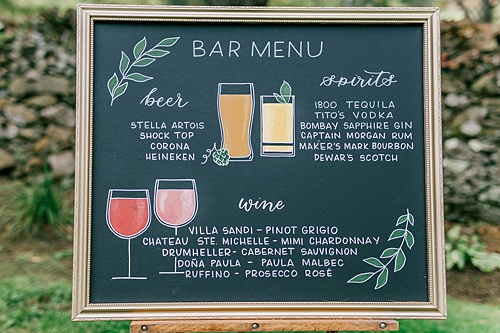 BAR MENU
beer
STELLA ARTOIS
SHOCK TOP
CORONA
HEINEKEN
spirits
1800 TEQUILA
TITO'S VODKA
BOMBAY SAPPHIRE GIN
CAPTAIN MORGAN RUM
MAKER'S MARK BOURBON
DEWAR'S SCOTCH
wine
VILLA SANDI - PINOT GRIGIO
CHATEAU STE. MICHELLE - MIMI CHARDONNAY
DRUMHELLER - CABERNET SAUVIGNON
DOÑA PAULA - PAULA MALBEC
RUFFINO - PROSECCO ROSÉ